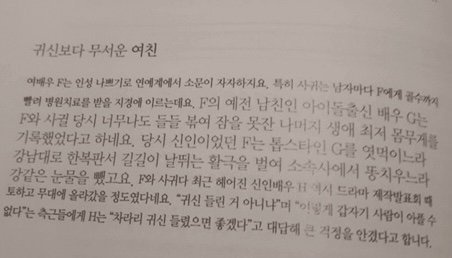 귀신보다 무서운 여친
여배우 F는 인성 나쁘기로 연예계에서 소문이 자자하지요. 특히 사귀는 남자마다 F에게 골수까지
빨려 병원치료를 받을 지경에 이르는데요. F의 예전 남친인 아이돌출신 배우 G는
F와 사귈 당시 너무나도 들들 볶여 잠을 못잔 나머지 생애 최저 몸무게를
기록했었다고 하네요. 당시 신인이었던 F는 톱스타인 G를 엿먹이느라
강남대로 한복판서 길길이 날뛰는 활극을 벌여 소속사에서 똥치우느라
강같은 눈물을 뺐고요. F와 사귀다 최근 헤어진 신인배우 H 역시 드라마 제작발표회 때
토하고 무대에 올라갔을 정도였다네요. “귀신 들린 거 아니냐”며 “어떻게 갑자기 사람이 아플 수
없다”는 측근들에게 H는 “차라리 귀신 들렸으면 좋겠다”고 대답해 큰 걱정을 안겼다고 합니다.